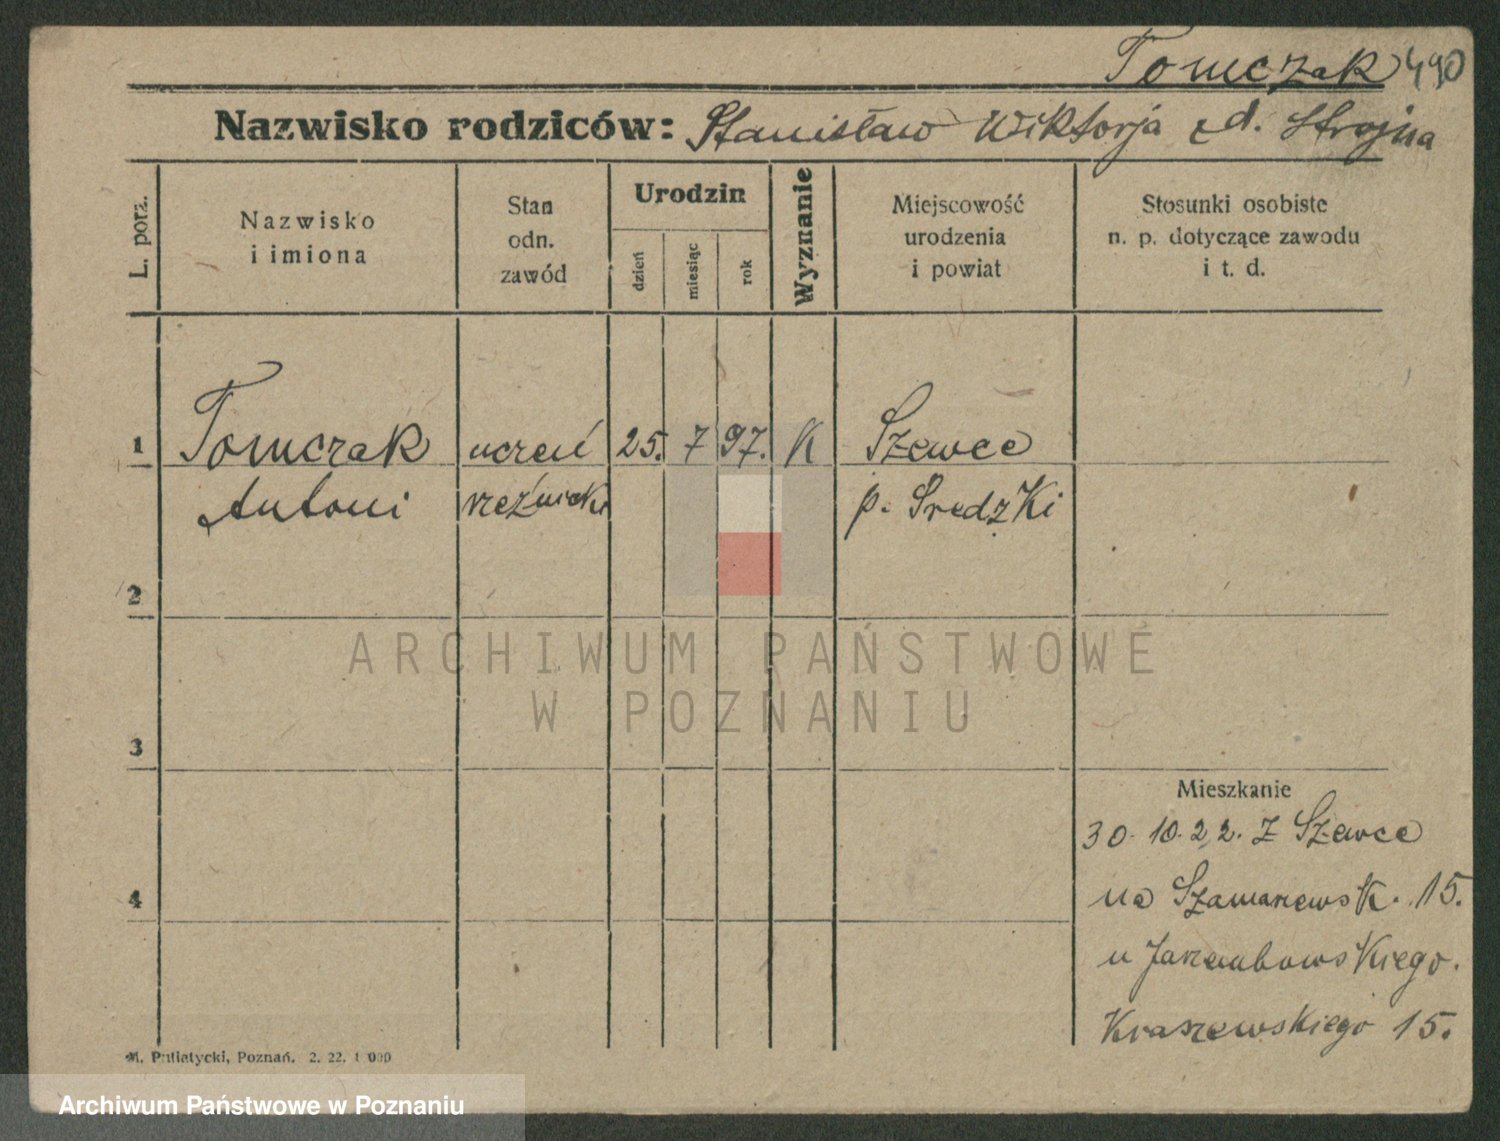 Tomczak 490
Nazwisko rodziców: Stanisław Wiktorja zd. Strojna
L. porz.
Nazwisko
i imiona
Stan
odn.
zawód
Urodzin
dzień
miesiąc
rok
Wyznanie
Miejscowość
urodzenia
i powiat
Stosunki osobiste
n. p. dotyczące zawodu
i t. d.
1 Tomczak uczeń 25. 7 97. K Szewce
Antoni rzeźnicki p. Sredzki
2
3
4
Mieszkanie
30.10.22. z Szewce
na Szamarzewsk. 15.
u Jarzembowskiego.
Kraszewskiego 15.
M. Putiatycki, Poznań. 2. 22. 1 000
ARCHIWUM PAŃSTWOWE
W POZNANIU
Archiwum Państwowe w Poznaniu